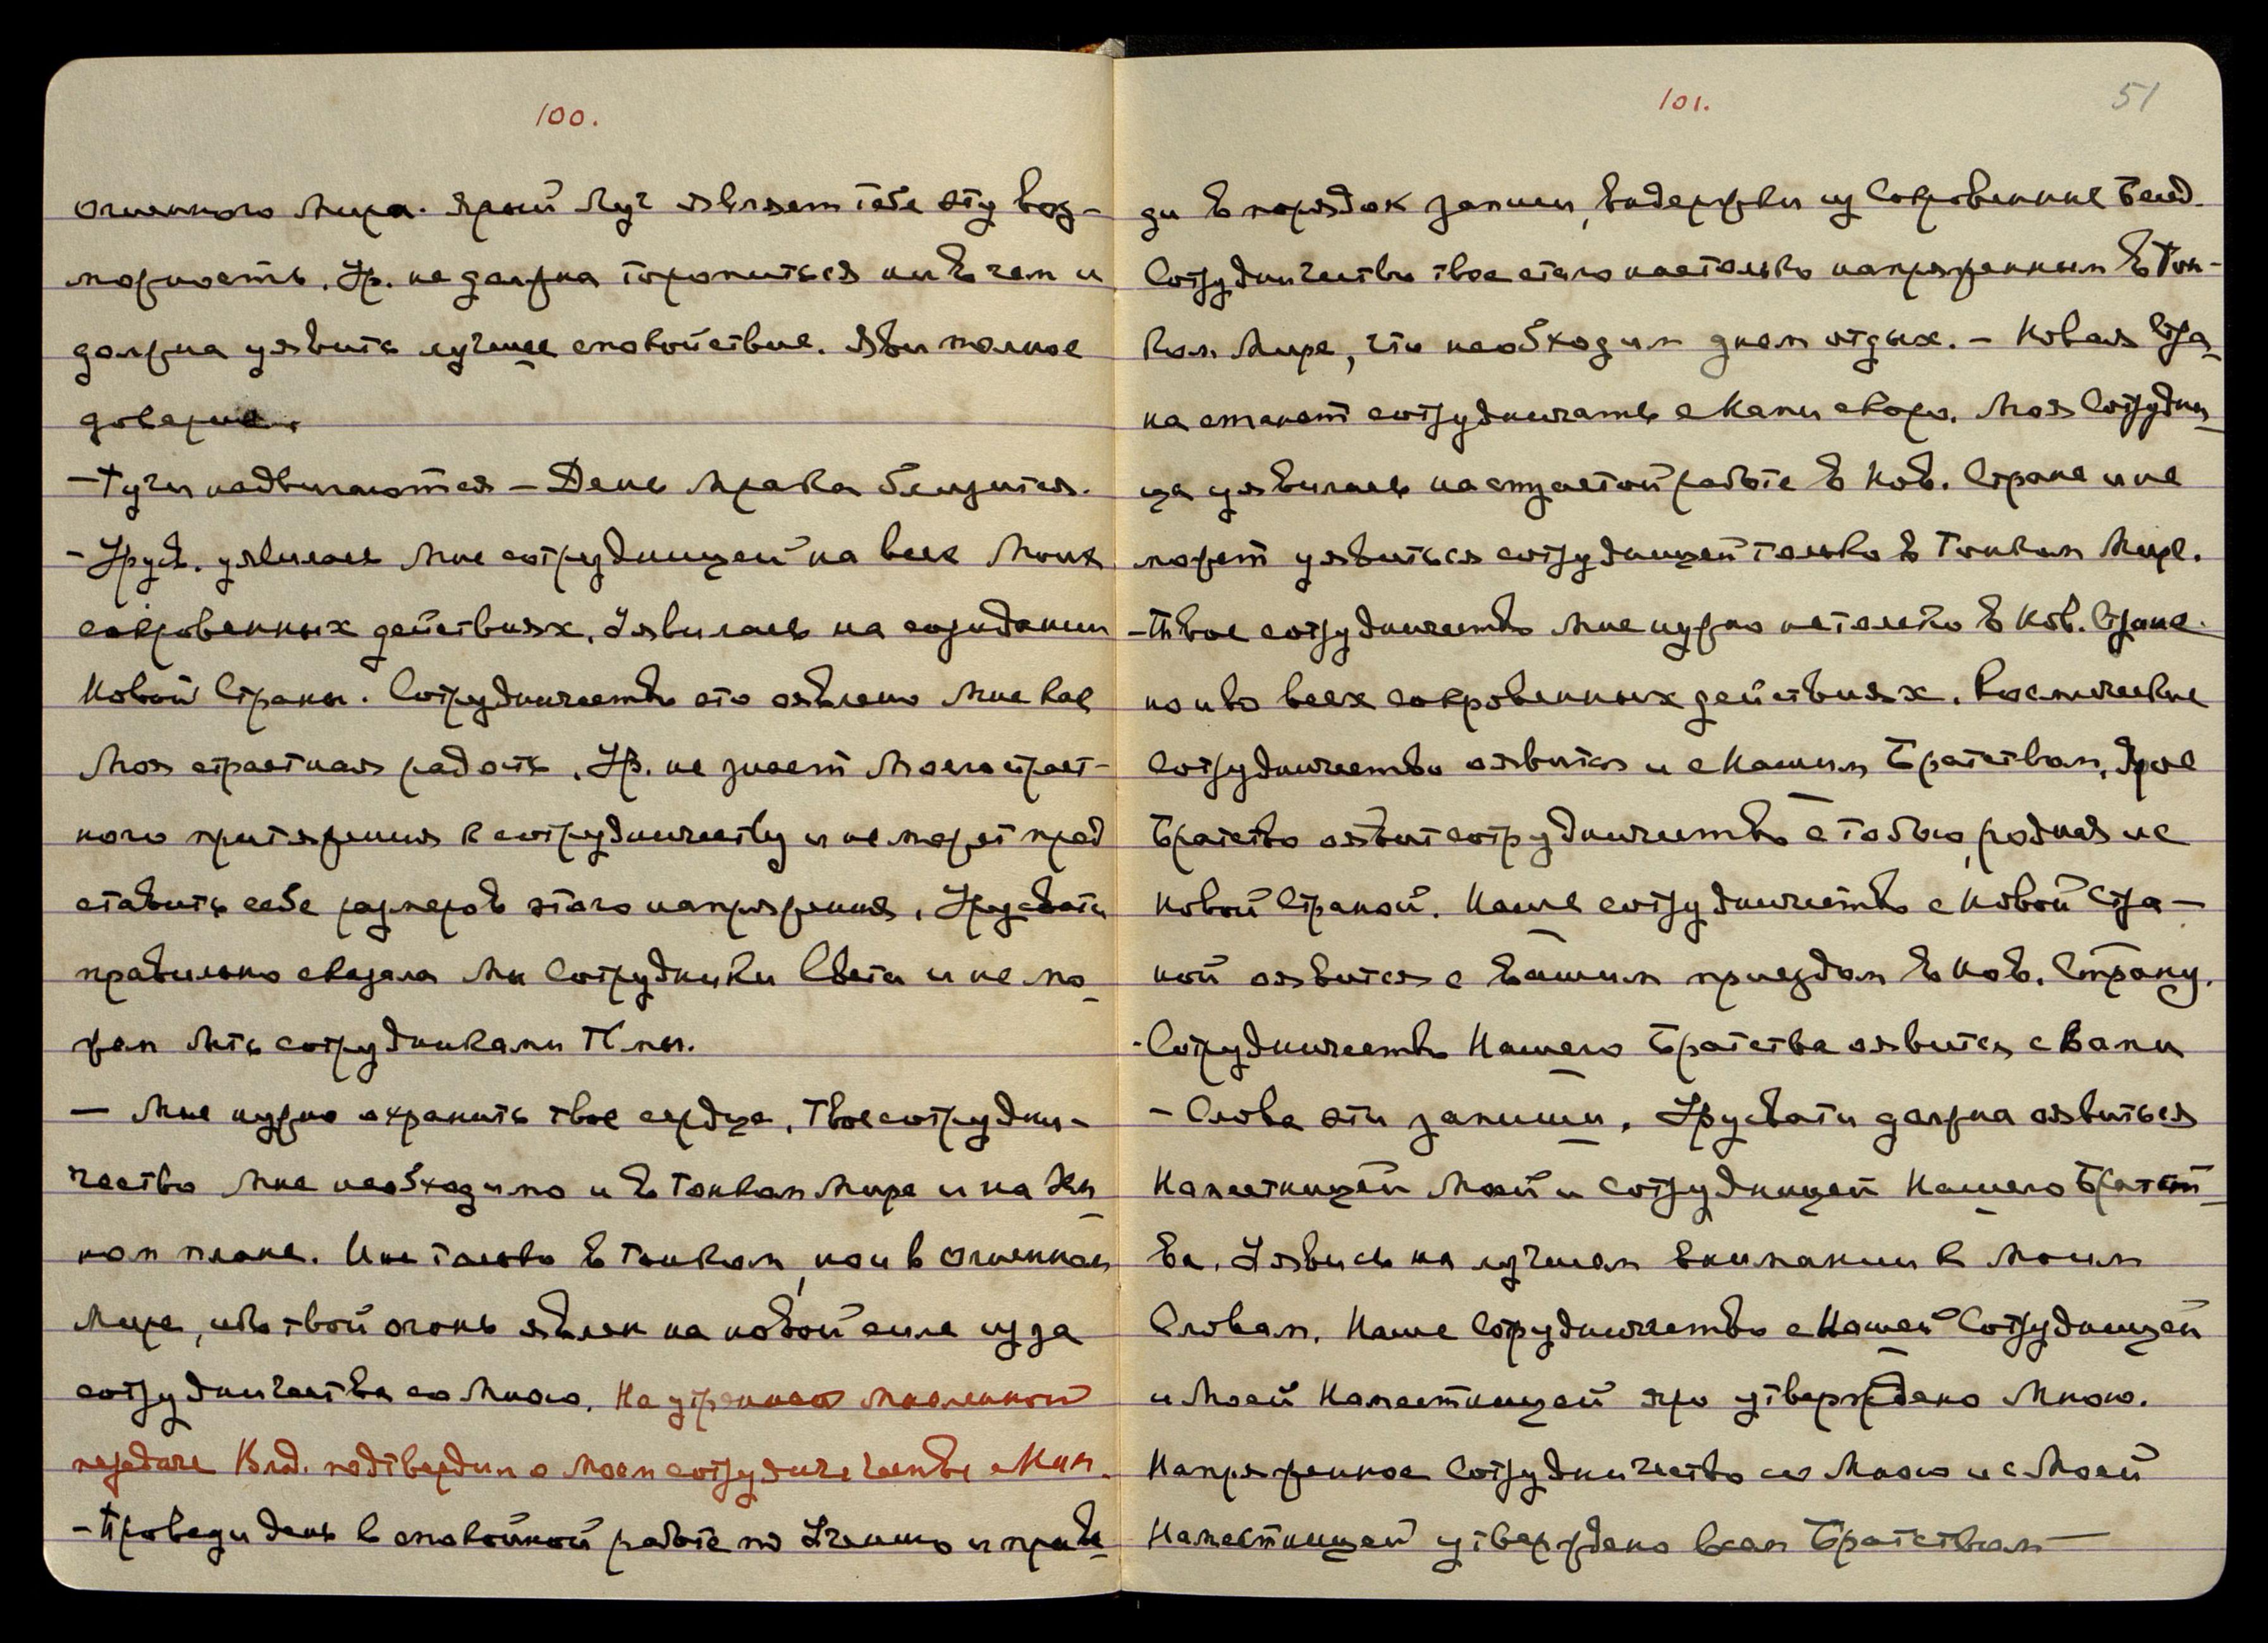 100.
огненного Мира. Ярый Луч являет тебе эту воз-
можность. Ур. не должна торопиться ни в чем и
должна уявить лучшее спокойствие. Яви полное
доверие.
- Тучи надвигаются – День Мрака близится.
- Урусв. уявилась Мне сотрудницей на всех Моих
сокровенных действиях. Уявилась на созидании
Новой Страны. Сотрудничество это явлено Мне как
Моя страстная радость. Ур. не знает Моего страст-
ного притяжения к сотрудничеству и не может пред
ставить себе размеров этого напряжения. Урусвати
правильно сказала Мы Сотрудники Света и не мо-
жем быть сотрудниками Тьмы.
— Мне нужно охранить твое сердце. Твое сотрудни-
чество Мне необходимо и в Тонком Мире и на Зем
ном плане. И не только в Тонком, но и в Огненном
Мире, ибо твой огонь явлен на новой силе из за
сотрудничества со Мною. На утренней мысленной
передаче Влад. подтвердил о моем сотрудничестве с Ним.
- Проведи день в спокойной работе по Учению и приве-
101.
51
ди в порядок записи, выдержки из Сокровенные Бесед.
Сотрудничество твое стало настолько напряженным в Тон-
ком Мире, что необходим днем отдых. – Новая Стра-
на станет сотрудничать с Нами скоро. Моя Сотрудни-
ца уявилась на страстной работе в Нов. Стране и не
может уявиться сотрудницей только в Тонком Мире.
- Твое сотрудничество Мне нужно не только в Нов. Стране.
но и во всех сокровенных действиях. Космическое
сотрудничество оявится и с Нашим Братством. Ярое
Братство оявит сотрудничество с тобою, родная не
Новой Страной. Наше сотрудничество с Новой Стра-
ной оявится с Вашим приездом в Нов. Страну.
- Сотрудничество Нашего Братства оявится с Вами
- Слова эти запиши. Урусвати должна оявиться
Наместницей Моей и сотрудницей Нашего Братст-
ва. Уявись на лучшем внимании к Моим
Словам. Наше Сотрудничество с Нашей Сотрудницей
и Моей Наместницей яро утверждено Мною.
Напряженное Сотрудничество со Мною и с Моей
Наместницей утверждено всем Братством —